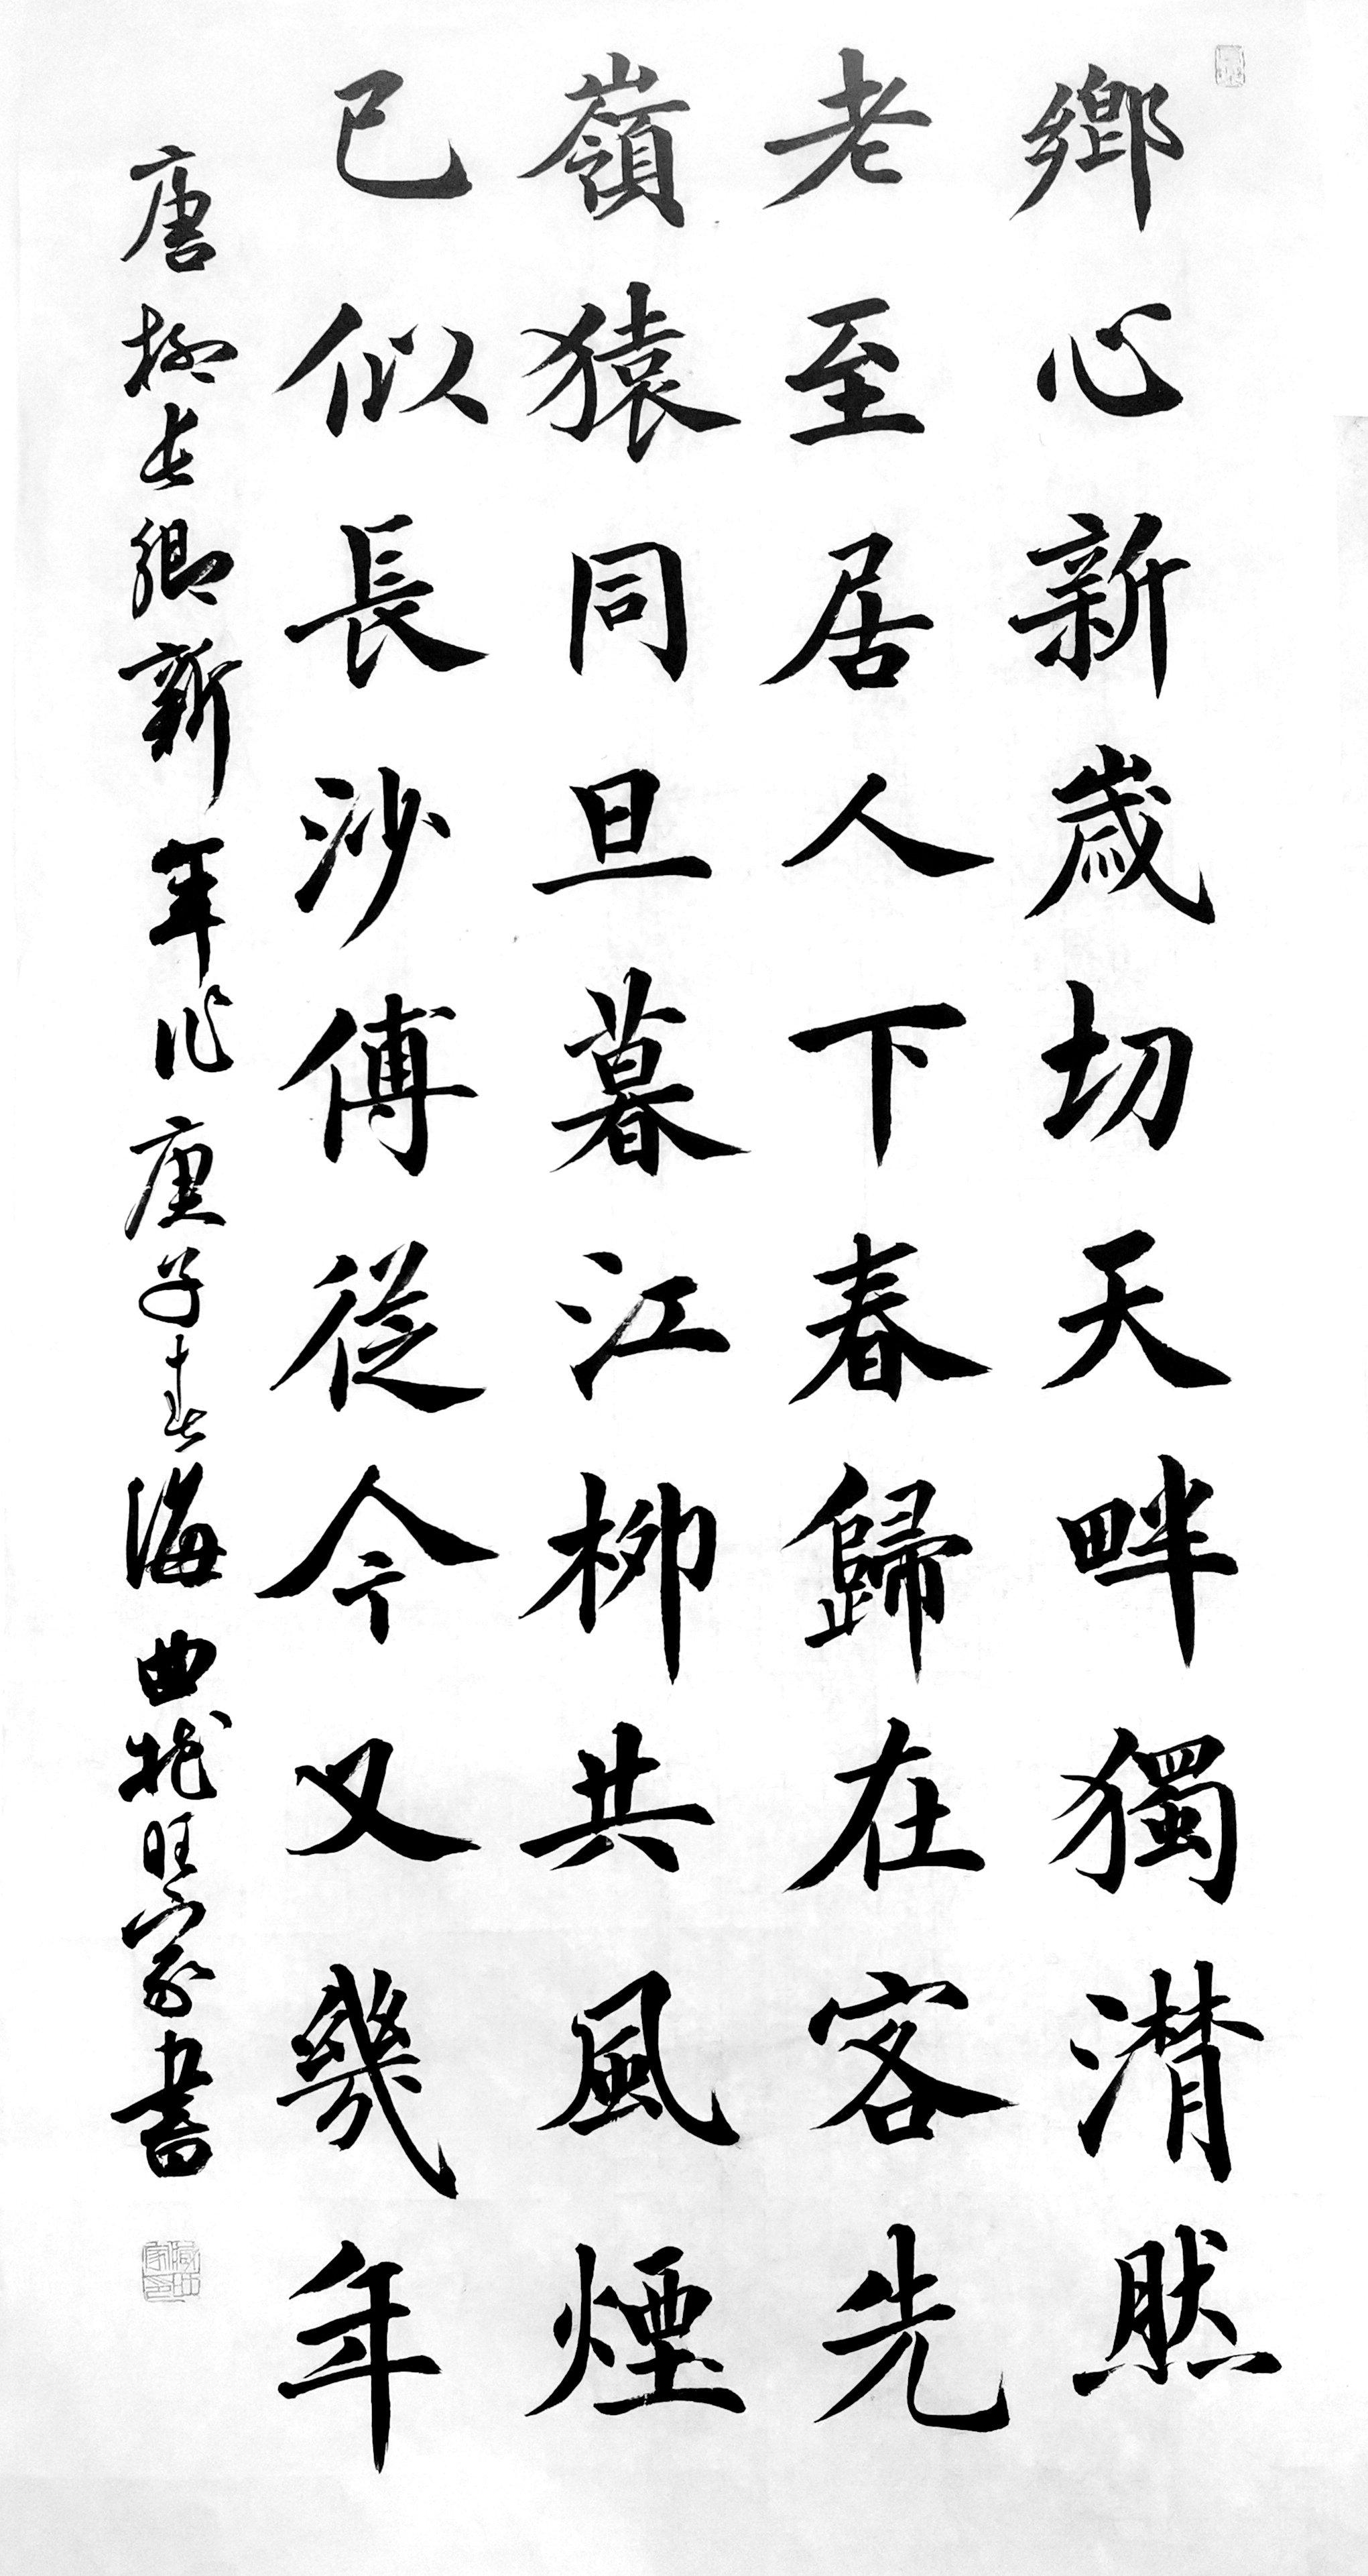 鄉心新歲切天畔獨潸然
老至居人下春歸在客先
嶺猿同旦暮江柳共風煙
已似長沙傅從今又幾年
唐柳长卿新年作庚子春海曲旺家書